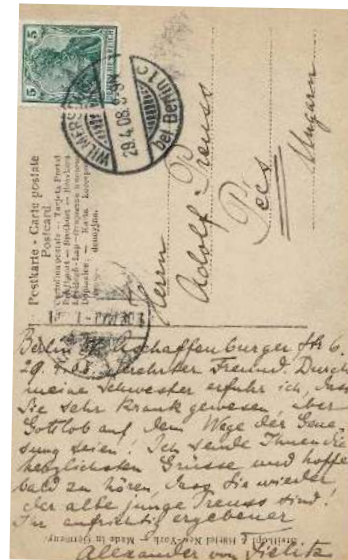 5
WILMERSDORF
29.4.08. 8-9N
bei Berlin 1 C
Postkarte - Carte postale
Postcard.
Herrn
Adolf Preuss
Pécs
Ungarn
Berlin Aschaffenburger Str 6.
29. 4. 08. Verehrter Freund. Durch
meine Schwester erfuhr ich, dass
Sie sehr krank gewesen, aber
Gottlob auf dem Wege der Gene-
sung seien! Ich sende Ihnen die
herzlichsten Grüsse und hoffe
bald zu hören, dass Sie wieder
der alte junge Preuss sind!
Ihr aufrichtig ergebener
Alexander von Fielitz
Breitkopf & Härtel New-York Made in Germany.